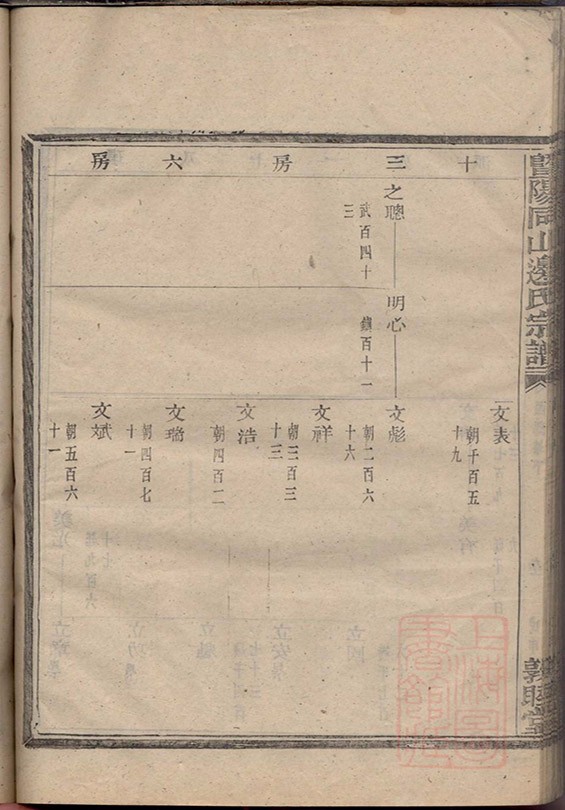 暨陽同山邊氏宗譜
敦睦堂
十三房六房
文表
朝千百五
十九
之聰
武百四十
三
明心
鎮百十一
文彪
朝二百六
十六
文祥
朝三百三
十三
文浩
朝四百二
文瑞
朝四百七
十一
文斌
朝五百六
十一
上海圖
書館藏